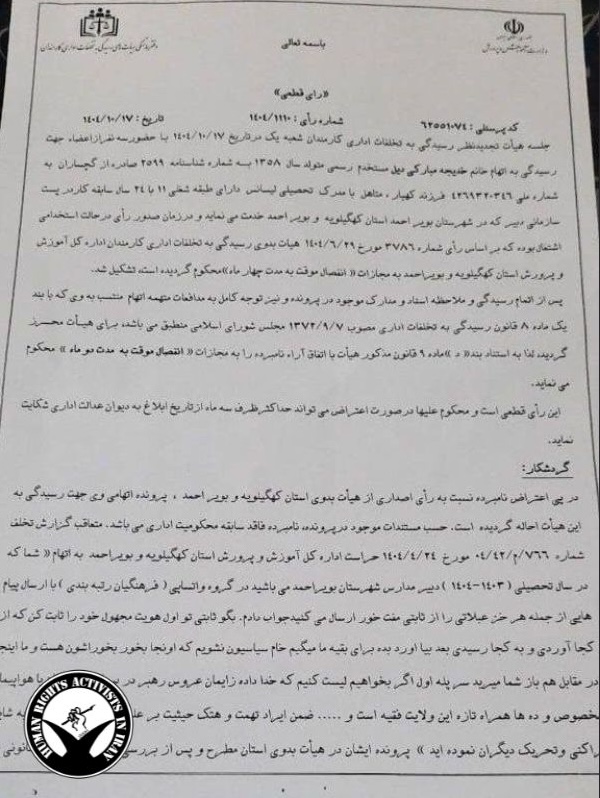 باسمه تعالی
وزارت آموزش و پرورش
دفتر هماهنگی هیات های رسیدگی به تخلفات اداری کارمندان
«رای قطعی»
کد پرسنلی : ۶۲۵۵۱۰۷۴ شماره رأی : ۱۴۰۴/۱۱۱۰ تاریخ : ۱۴۰۴/۱۰/۱۷
جلسه هیأت تجدیدنظر رسیدگی به تخلفات اداری کارمندان شعبه یک درتاریخ ۱۴۰۴/۱۰/۱۷ با حضورسه نفرازاعضاء جهت
رسیدگی به اتهام خانم خدیجه مبارکی دیل مستخدم رسمی متولد سال ۱۳۵۸ به شماره شناسنامه ۲۵۹۹ صادره از گچساران به
شماره ملی ۴۲۶۹۳۲۰۳۴۶ فرزند کهیار ، متاهل با مدرک تحصیلی لیسانس دارای طبقه شغلی ۱۱ با ۲۴ سال سابقه کاردر پست
سازمانی دبیر که در شهرستان بویر احمد استان کهگیلویه و بویر احمد خدمت می نماید و درزمان صدور رأی درحالت استخدامی
اشتغال بوده که بر اساس رأی شماره ۳۷۸۶ مورخ ۱۴۰۴/۶/۲۹ هیات بدوی رسیدگی به تخلفات اداری کارمندان اداره کل آموزش و
پرورش استان کهگیلویه و بویراحمد به مجازات « انفصال موقت به مدت چهار ماه »محکوم گردیده است، تشکیل شد.
پس از اتمام رسیدگی و ملاحظه اسناد و مدارک موجود در پرونده و نیز توجه کامل به مدافعات متهمه اتهام منتسب به وی که با بند
یک ماده ۸ قانون رسیدگی به تخلفات اداری مصوب ۱۳۷۲/۹/۷ مجلس شورای اسلامی منطبق می باشد، برای هیأت محرز
گردید، لذا به استناد بند« د »ماده ۹ قانون مذکور هیأت با اتفاق آراء نامبرده را به مجازات « انفصال موقت به مدت دو ماه » محکوم
می نماید.
این رأی قطعی است و محکوم علیها درصورت اعتراض می تواند حداکثرظرف سه ماه ازتاریخ ابلاغ به دیوان عدالت اداری شکایت
نماید.
گردشکار:
در پی اعتراض نامبرده نسبت به رأی اصداری از هیأت بدوی استان کهگیلویه و بویر احمد ، پرونده اتهامی وی جهت رسیدگی به
این هیأت احاله گردیده است. حسب مستندات موجود درپرونده، نامبرده فاقد سابقه محکومیت اداری می باشد. متعاقب گزارش تخلف
شماره ۷۶۶/م/۰۴/۴۲ مورخ ۱۴۰۴/۴/۲۴ حراست اداره کل آموزش و پرورش استان کهگیلویه و بویراحمد به اتهام « شما که
در سال تحصیلی (۱۴۰۳-۱۴۰۴) دبیر مدارس شهرستان بویراحمد می باشید در گروه واتساپی ( فرهنگیان رتبه بندی ) با ارسال پیام
هایی از جمله هر خز عبلاتی را از ثابتی مفت خور ارسال می کنیدجواب دادم. بگو ثابتی تو اول هویت مجهول خود را ثابت کن که از
کجا آوردی و به کجا رسیدی بعد بیا اورد بده برای بقیه ما میگیم خام سیاسیون نشویم که اونجا بخور بخوراشون هست و ما اینجا
در مقابل هم باز شما میرید سر پله اول اگر بخواهیم لیست کنیم که خدا داده زایمان عروس رهبر در با هواپیما
مخصوص و ده ها همراه تازه این ولایت فقیه است و ..... ضمن ایراد تهمت و هتک حیثیت بر
پراکنی وتحریک دیگران نموده اید » پرونده ایشان در هیأت بدوی استان مطرح و پس از بررسی قانونی
HUMAN RIGHTS ACTIVISTS IN IRAN